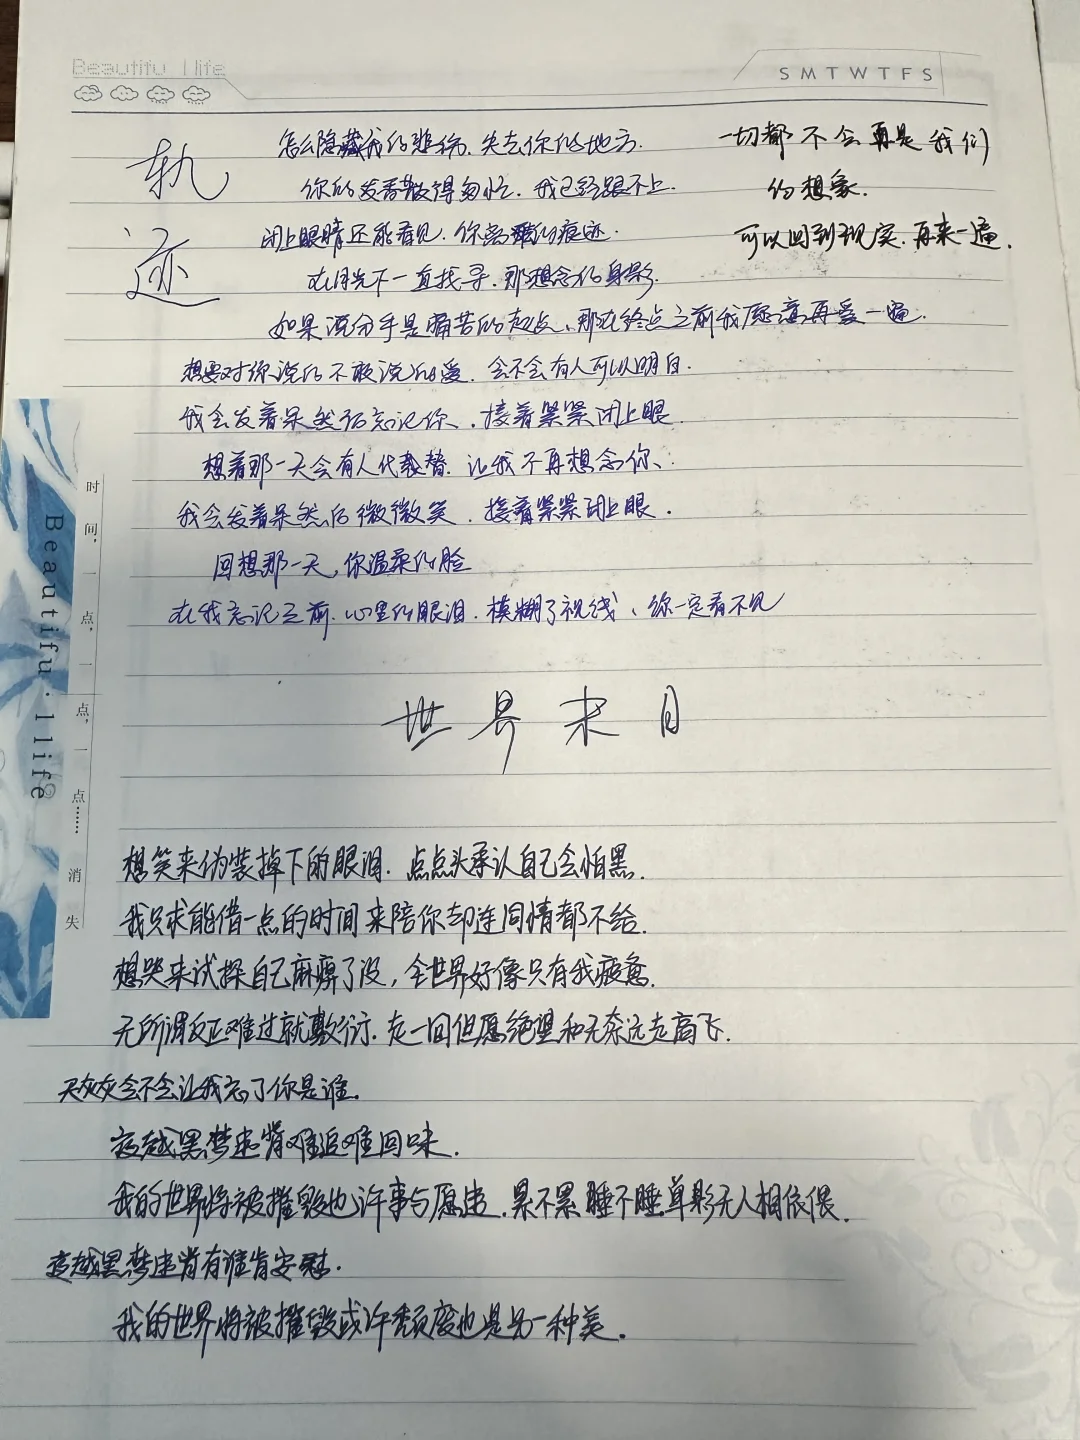 Beautifu l life
S M T W T F S
轨迹
怎么隐藏我的悲伤.失去你的地方.
你的发香散得匆忙.我已经跟不上.
闭上眼睛还能看见.你离开的痕迹.
在月光下一直找寻.那想念的身影.
如果说分手是痛苦的起点、那在终点之前我愿意再爱一遍.
想要对你说的不敢说的爱.会不会有人可以明白.
我会发着呆然后忘记你、.接着紧紧闭上眼.
想着那一天会有人代替.让我不再想念你、.
我会发着呆然后微微笑.接着紧紧闭上眼.
回想那一天,你温柔的脸
在我忘记之前.心里的眼泪.模糊了视线、你一定看不见
一切都不会再是我们
的想象.
可以回到现实.再来一遍.
时间,一点,一点,一点……消失
Beautifu·l life
世界末日
想笑来伪装掉下的眼泪.点点头承认自己会怕黑.
我只求能借一点的时间来陪你却连同情都不给.
想哭来试探自己麻痹了没,全世界好像只有我疲惫.
无所谓反正难过就敷衍.走一回但愿绝望和无奈远走高飞.
天灰灰会不会让我忘了你是谁.
夜越黑梦违背难追难回味.
我的世界将被摧毁也许事与愿违.累不累睡不睡单影无人相依偎.
夜越黑梦违背有谁肯安慰.
我的世界将被摧毁或许颓废也是另一种美.